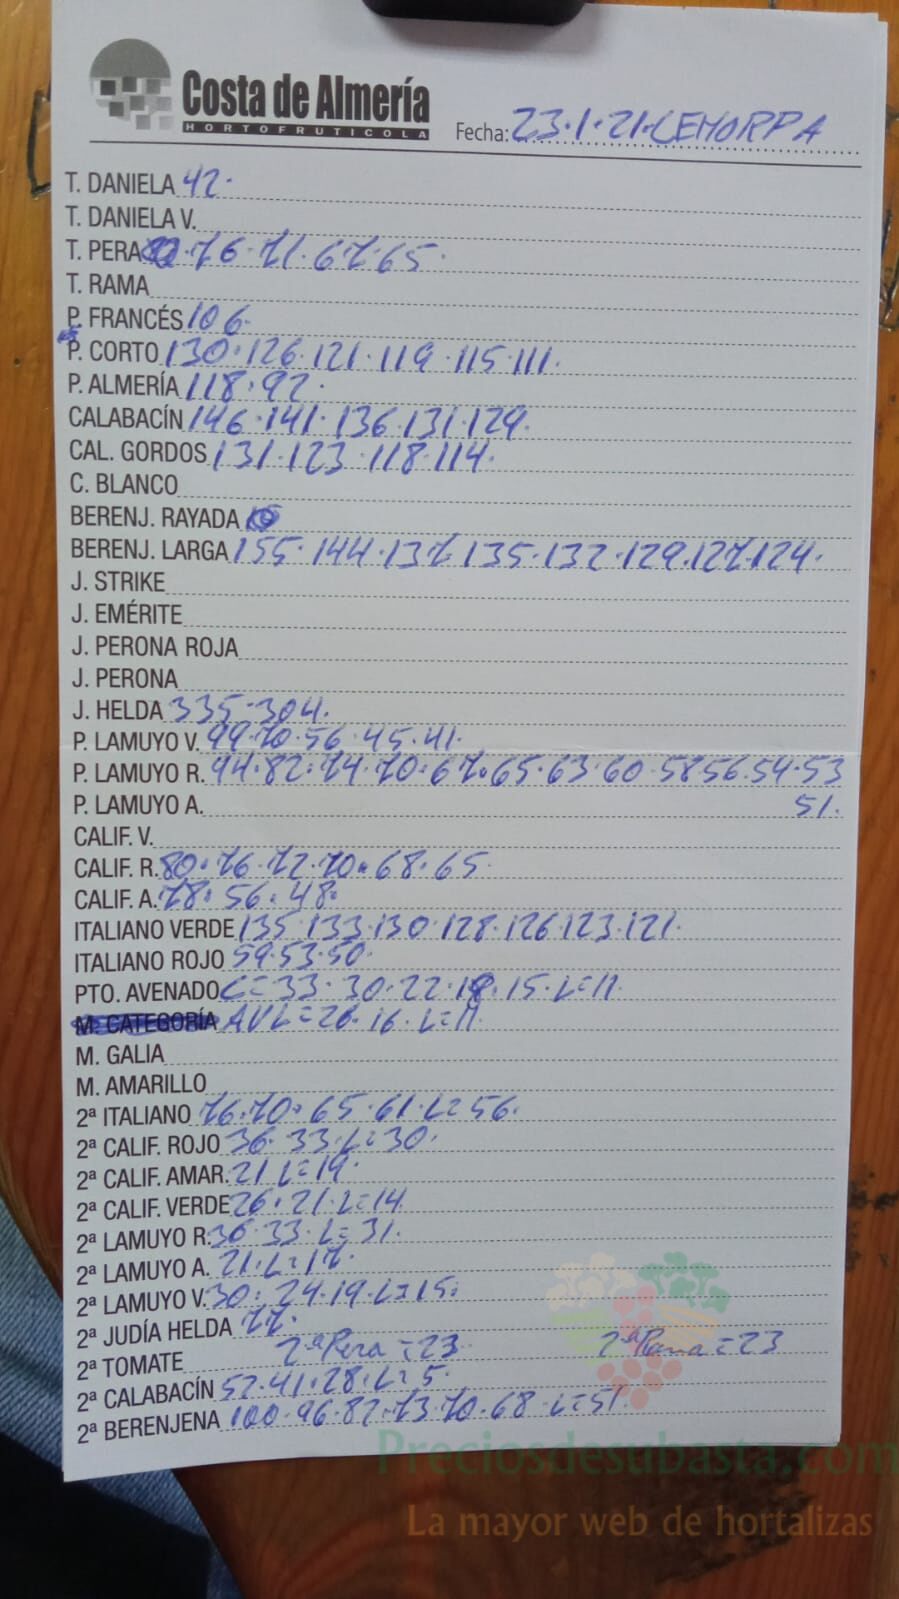 Costa de Almería
HORTOFRUTICOLA
Fecha: 23·1·21·CEHORPA
T. DANIELA 42·
T. DANIELA V.
T. PERA ·76·71·67·65·
T. RAMA
P. FRANCÉS 106·
P. CORTO 130·126·121·119·115·111·
P. ALMERÍA 118·92·
CALABACÍN 146·141·136·131·129·
CAL. GORDOS 131·123·118·114·
C. BLANCO
BERENJ. RAYADA
BERENJ. LARGA 155·144·137·135·132·129·127·124·
J. STRIKE
J. EMÉRITE
J. PERONA ROJA
J. PERONA
J. HELDA 335·304·
P. LAMUYO V. 99·70·56·45·41·
P. LAMUYO R. 94·82·74·70·67·65·63·60·58·56·54·53
P. LAMUYO A. 51·
CALIF. V.
CALIF. R. 80·76·72·70·68·65·
CALIF. A. 78·56·48·
ITALIANO VERDE 135·133·130·128·126·123·121·
ITALIANO ROJO 59·53·50·
PTO. AVENADO C=33·30·22·18·15·L=11·
M. CATEGORÍA AVL=26·16·L=11·
M. GALIA
M. AMARILLO
2ª ITALIANO 76·70·65·61·L=56·
2ª CALIF. ROJO 36·33·L=30·
2ª CALIF. AMAR. 21·L=19·
2ª CALIF. VERDE 26·21·L=14·
2ª LAMUYO R. 36·33·L=31·
2ª LAMUYO A. 21·L=17·
2ª LAMUYO V. 30·24·19·L=15·
2ª JUDÍA HELDA 77·
2ª TOMATE 2ª Pera =23· 2ª Rama =23
2ª CALABACÍN 52·41·28·L=5·
2ª BERENJENA 100·96·82·73·70·68·L=51·
Preciosdesubasta.com
La mayor web de hortalizas